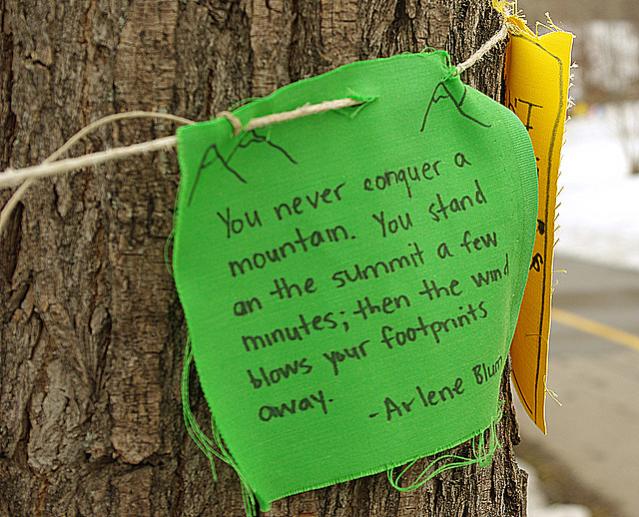 You never conquer a
mountain. You stand
an the summit a few
minutes; then the wind
blows your footprints
away.
-Arlene Blum